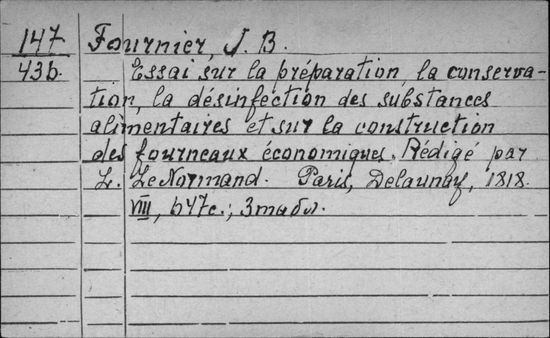 147 Fournier, J. B.
43b. Essai sur la préparation, la conserva-
tion, la désinfection des substances
alimentaires et sur la construction
des fourneaux économiques. Rédigé par
L. LeNormand. Paris, Delaunay, 1818.
VIII, 647c.; 3 табл.